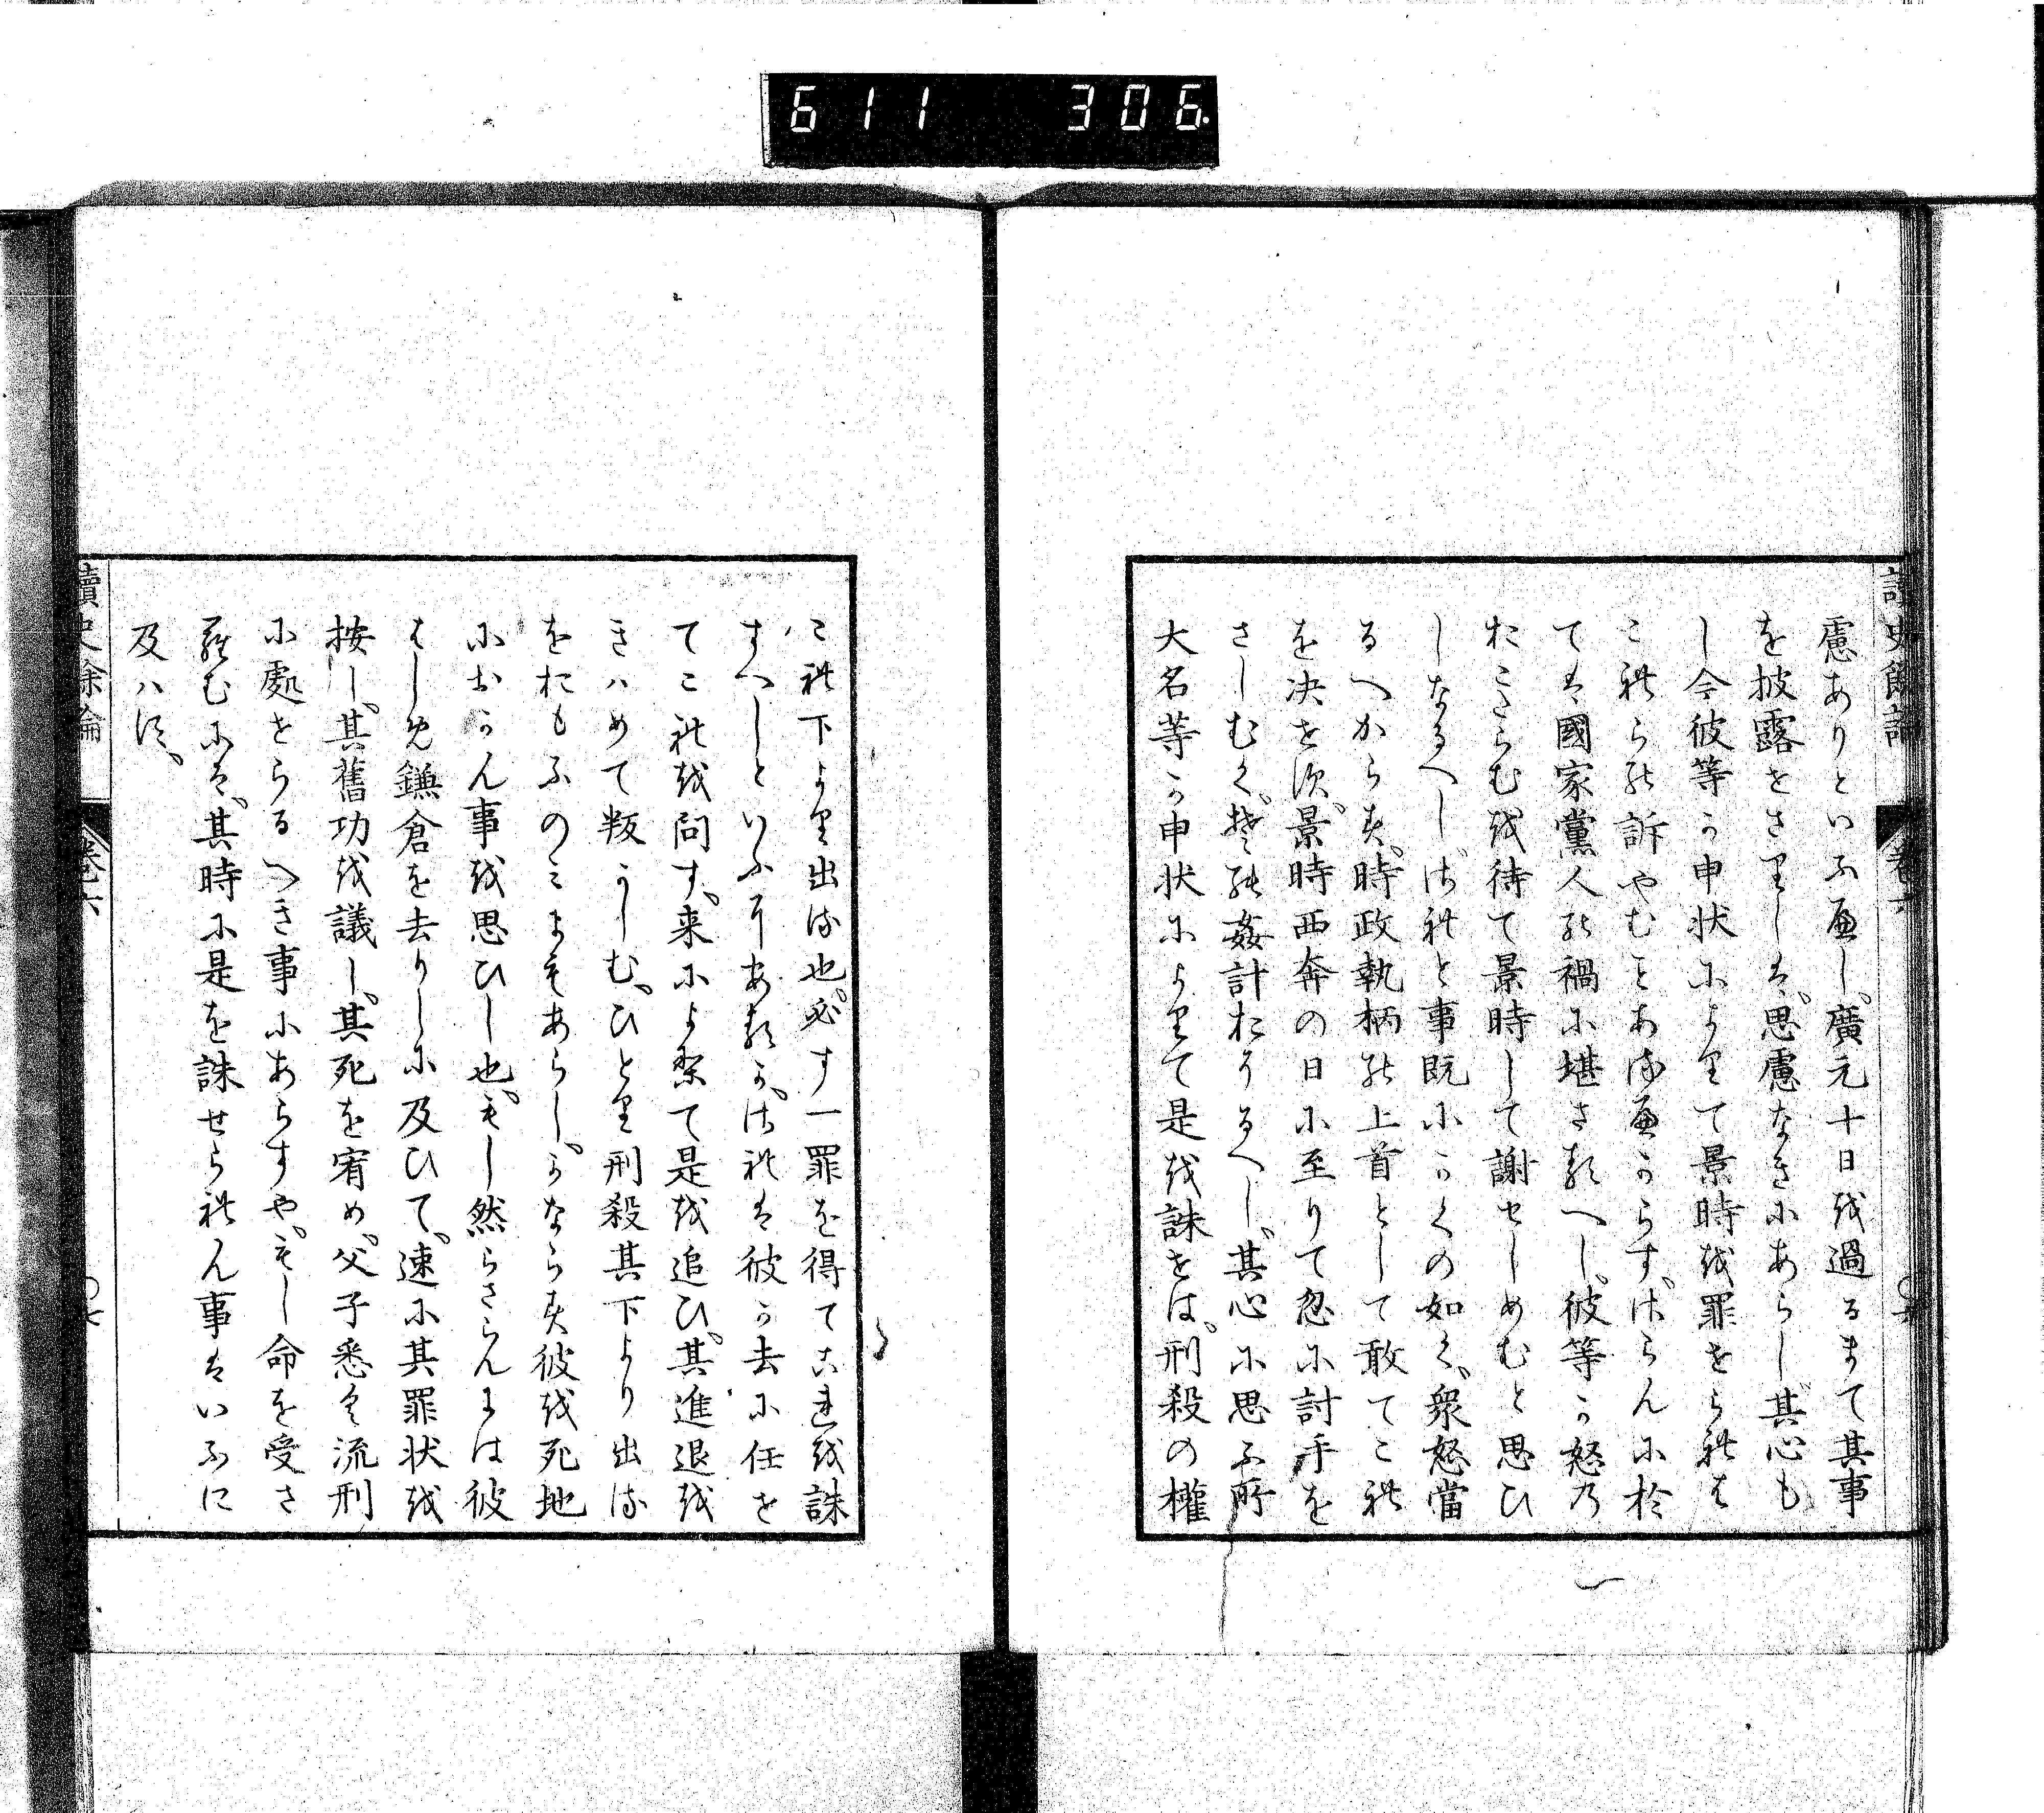 611 306
讀史餘論 卷六
慮ありといふ廉し、廣元十日越過るまて其事
を披露せさりしは、思慮なきにあらし、其心も
し今彼等か申状によりて景時越罪せられは
これらの訴やむことある廉からす、さらんに於
ては國家黨人の禍に堪さるへし、彼等か怒乃
おこらむ越待て景時して謝せしめむと思ひ
しなるへし、されと事既にかくの如く、衆怒當
るへからす、時政執柄の上首として敢てこれ
を决せす、景時西奔の日に至りて忽に討手を
さしむく、其姦計おそるへし、其心に思ふ所
大名等か申状によりて是越誅せは、刑殺の權
これ下より出る也、必す一罪を得てこれ越誅
すへしといふにあるか、されは彼か去に任せ
てこれ越問す、来によりて是越追ひ、其進退越
きハめて叛かしむ、ひとり刑殺其下より出る
をおもふのミにもあらし、かならす彼越死地
におかん事越思ひし也、もし然らさらんには彼
はしめ鎌倉を去りしに及ひて、速に其罪状越
按し、其舊功越議し、其死を宥め、父子悉く流刑
に處せらるへき事にあらすや、もし命を受さ
らむには、其時に是を誅せられん事はいふに
及ハす、
讀史餘論 卷六